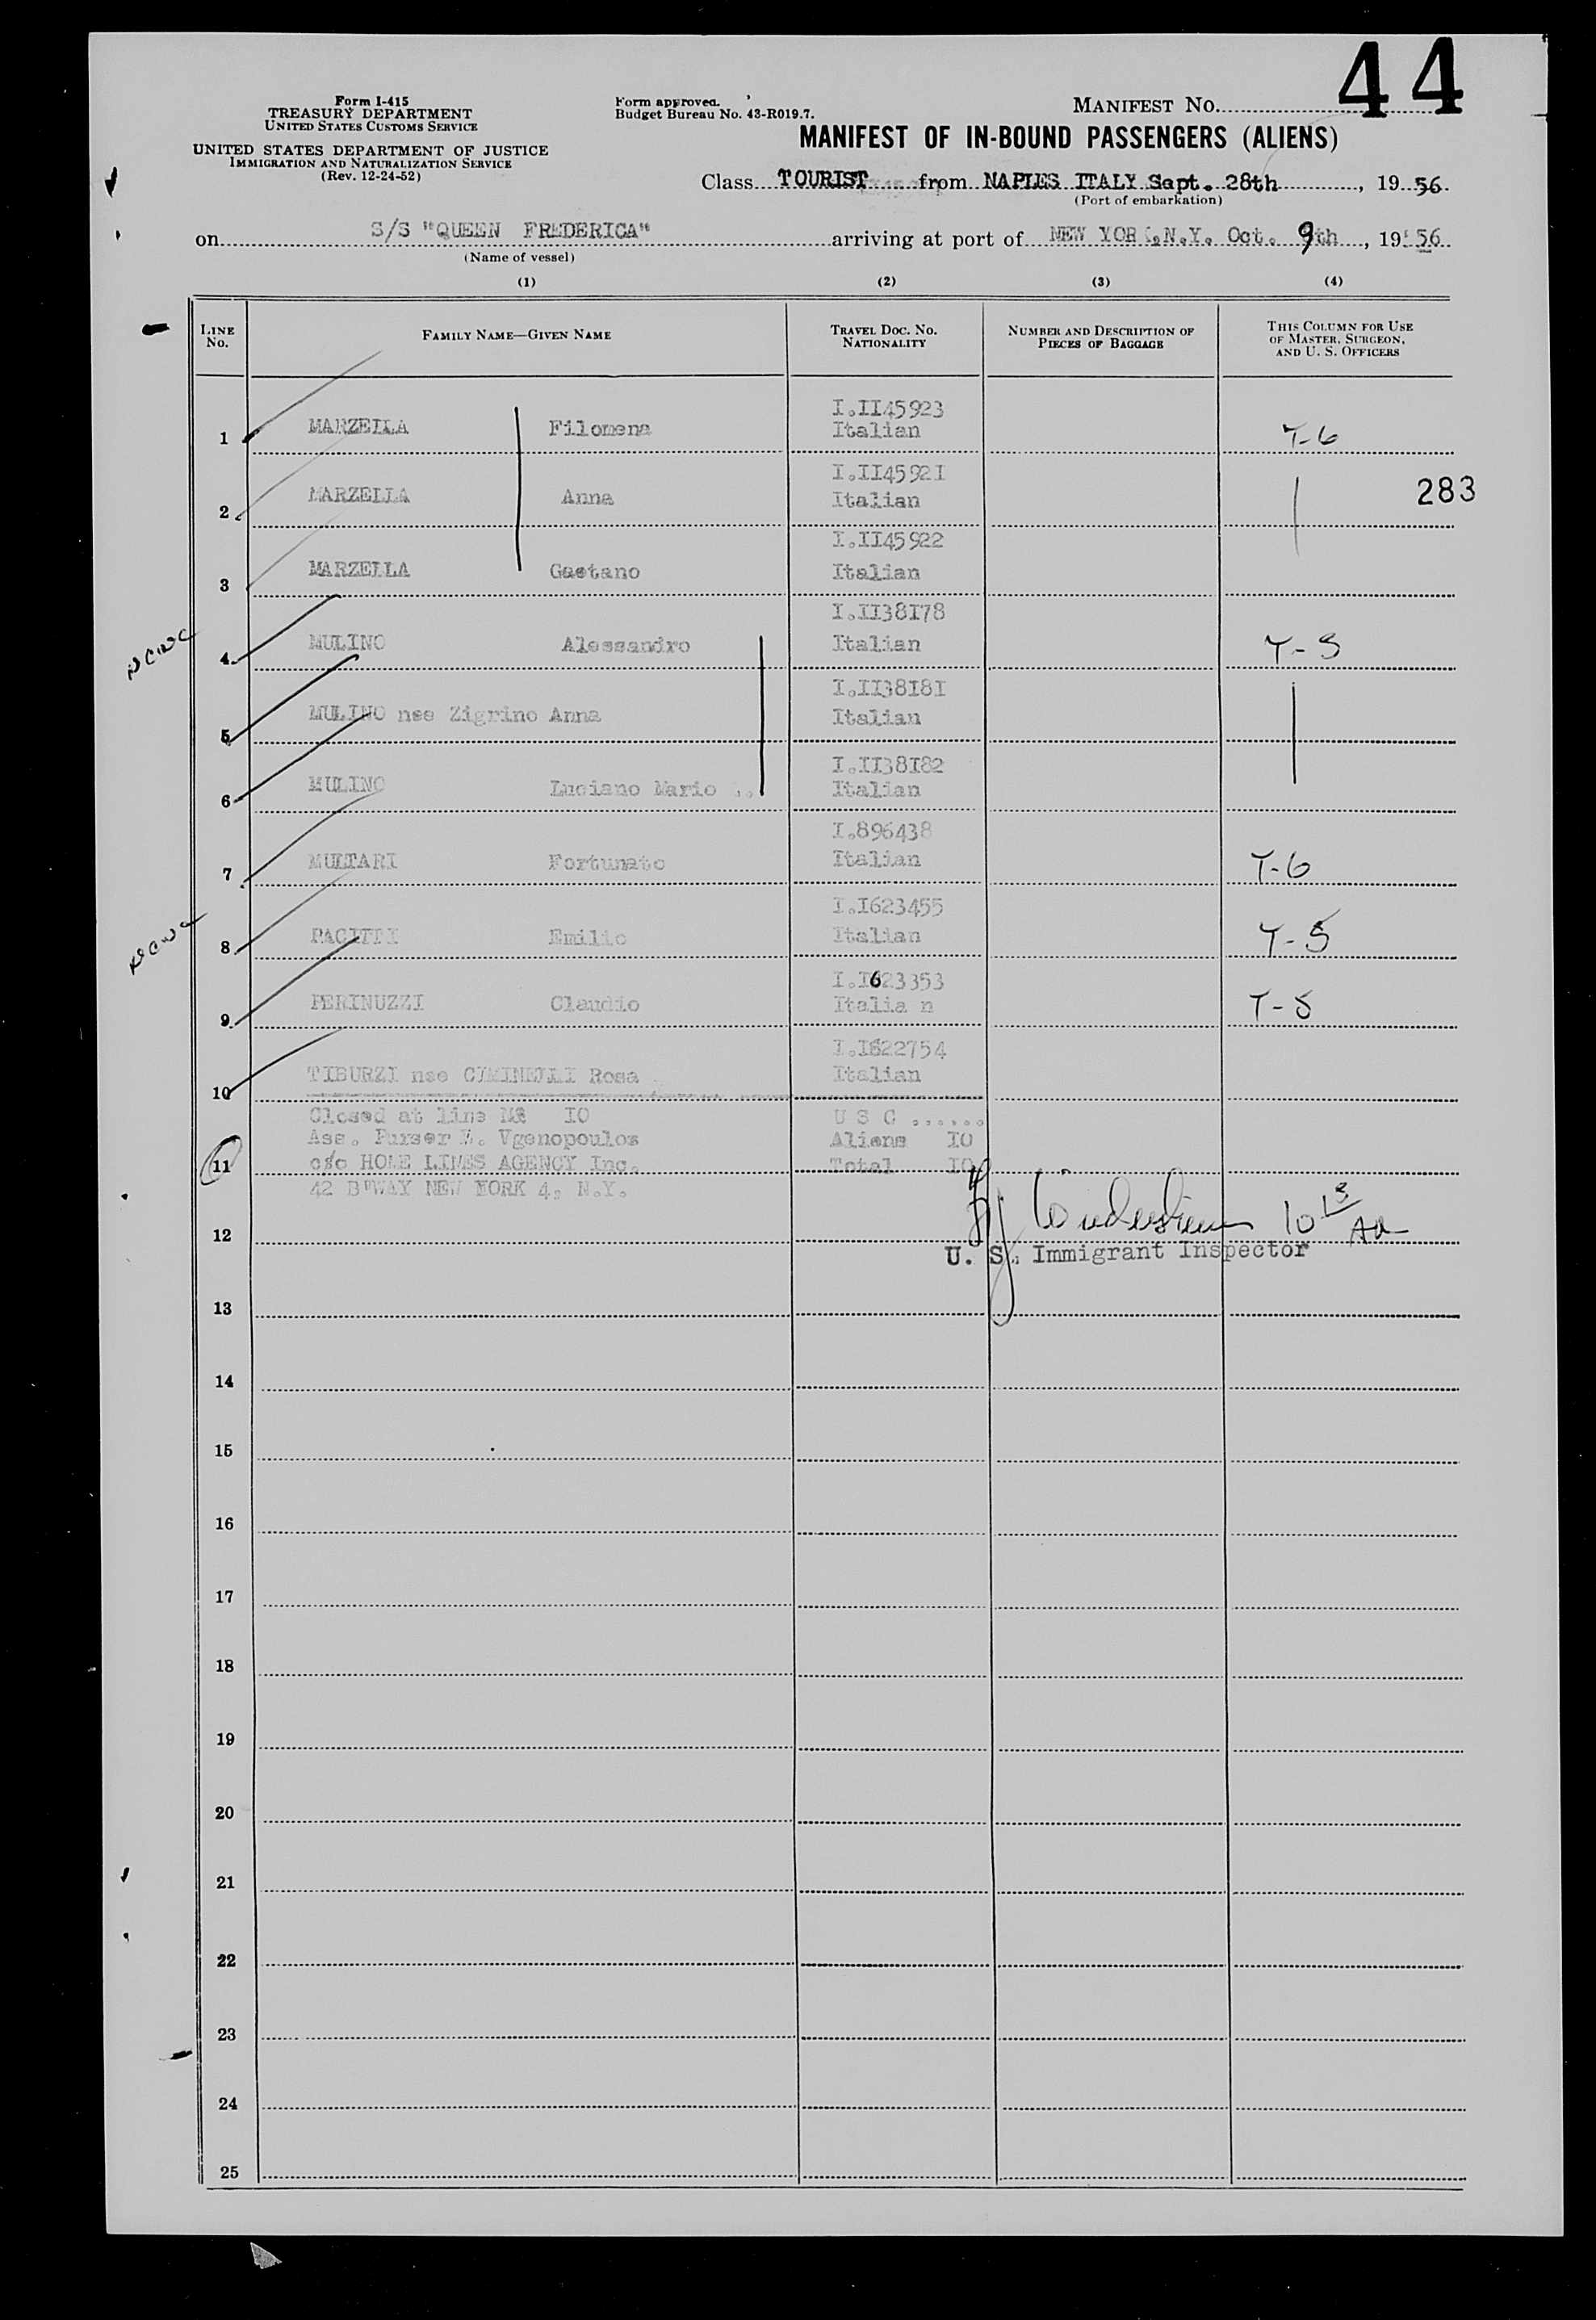 44
Form I-415
TREASURY DEPARTMENT
UNITED STATES CUSTOMS SERVICE
UNITED STATES DEPARTMENT OF JUSTICE
IMMIGRATION AND NATURALIZATION SERVICE
(Rev. 12-24-52)
Form approved.
Budget Bureau No. 43-R019.7.
MANIFEST NO.
MANIFEST OF IN-BOUND PASSENGERS (ALIENS)
Class TOURIST from NAPLES ITALY Sept. 28th, 19 56
(Port of embarkation)
on S/S "QUEEN FREDERICA" arriving at port of NEW YOR ,N.Y. Oct. 9th, 19 56
(Name of vessel)
(1) (2) (3) (4)
LINE No. FAMILY NAME—GIVEN NAME TRAVEL DOC. NO. NATIONALITY NUMBER AND DESCRIPTION OF PIECES OF BAGGAGE THIS COLUMN FOR USE OF MASTER, SURGEON, AND U. S. OFFICERS
I.II45923
1 MARZELLA Filomena Italian T-6
I.II45921
2 MARZELLA Anna Italian 283
I.II45922
3 MARZELLA Gaetano Italian
I.II38I78
4 MULINO Alessandro Italian T-5
I.II38I8I
5 MULINO nee Zigrino Anna Italian
I.II38I82
6 MULINO Luciano Mario Italian
I.896438
7 MULTARI Fortunato Italian T-6
I.I623455
8 PACITTI Emilio Italian T-5
I.I623353
9 PERINUZZI Claudio Italia n T-5
I.I622754
10 TIBURZI nee CIMINELLI Rosa Italian
Closed at line No IO U S C ......
Ass. Purser Vgenopoulos Aliens IO
11 c/o HOME LINES AGENCY Inc. Total IO
42 B'WAY NEW YORK 4, N.Y.
12
U. S. Immigrant Inspector
13
14
15
16
17
18
19
20
21
22
23
24
25